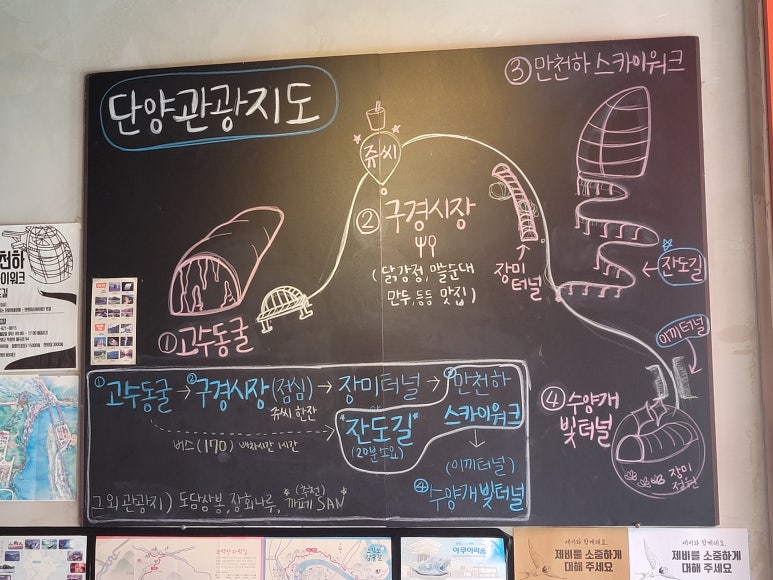 단양관광지도
③ 만천하 스카이워크
쥬씨
② 구경시장
(닭강정, 마늘순대
만두, 등등 맛집)
장미
터널
잔도길
이끼터널
① 고수동굴
④ 수양개
빛터널
장미
정원
① 고수동굴 → ② 구경시장 (점심) → 장미터널 → ③ 만천하
스카이워크
쥬씨 한잔
버스 (170) 배차시간 1시간
*잔도길*
(20분 소요)
(이끼터널)
④ 수양개 빛터널
그 외 관광지) 도담삼봉, 장회나루, *카페 SAN*
(추천)
제비와 함께해요.
제비를 소중하게
대해 주세요
제비와 함께해요.
제비를 소중하게
대해 주세요